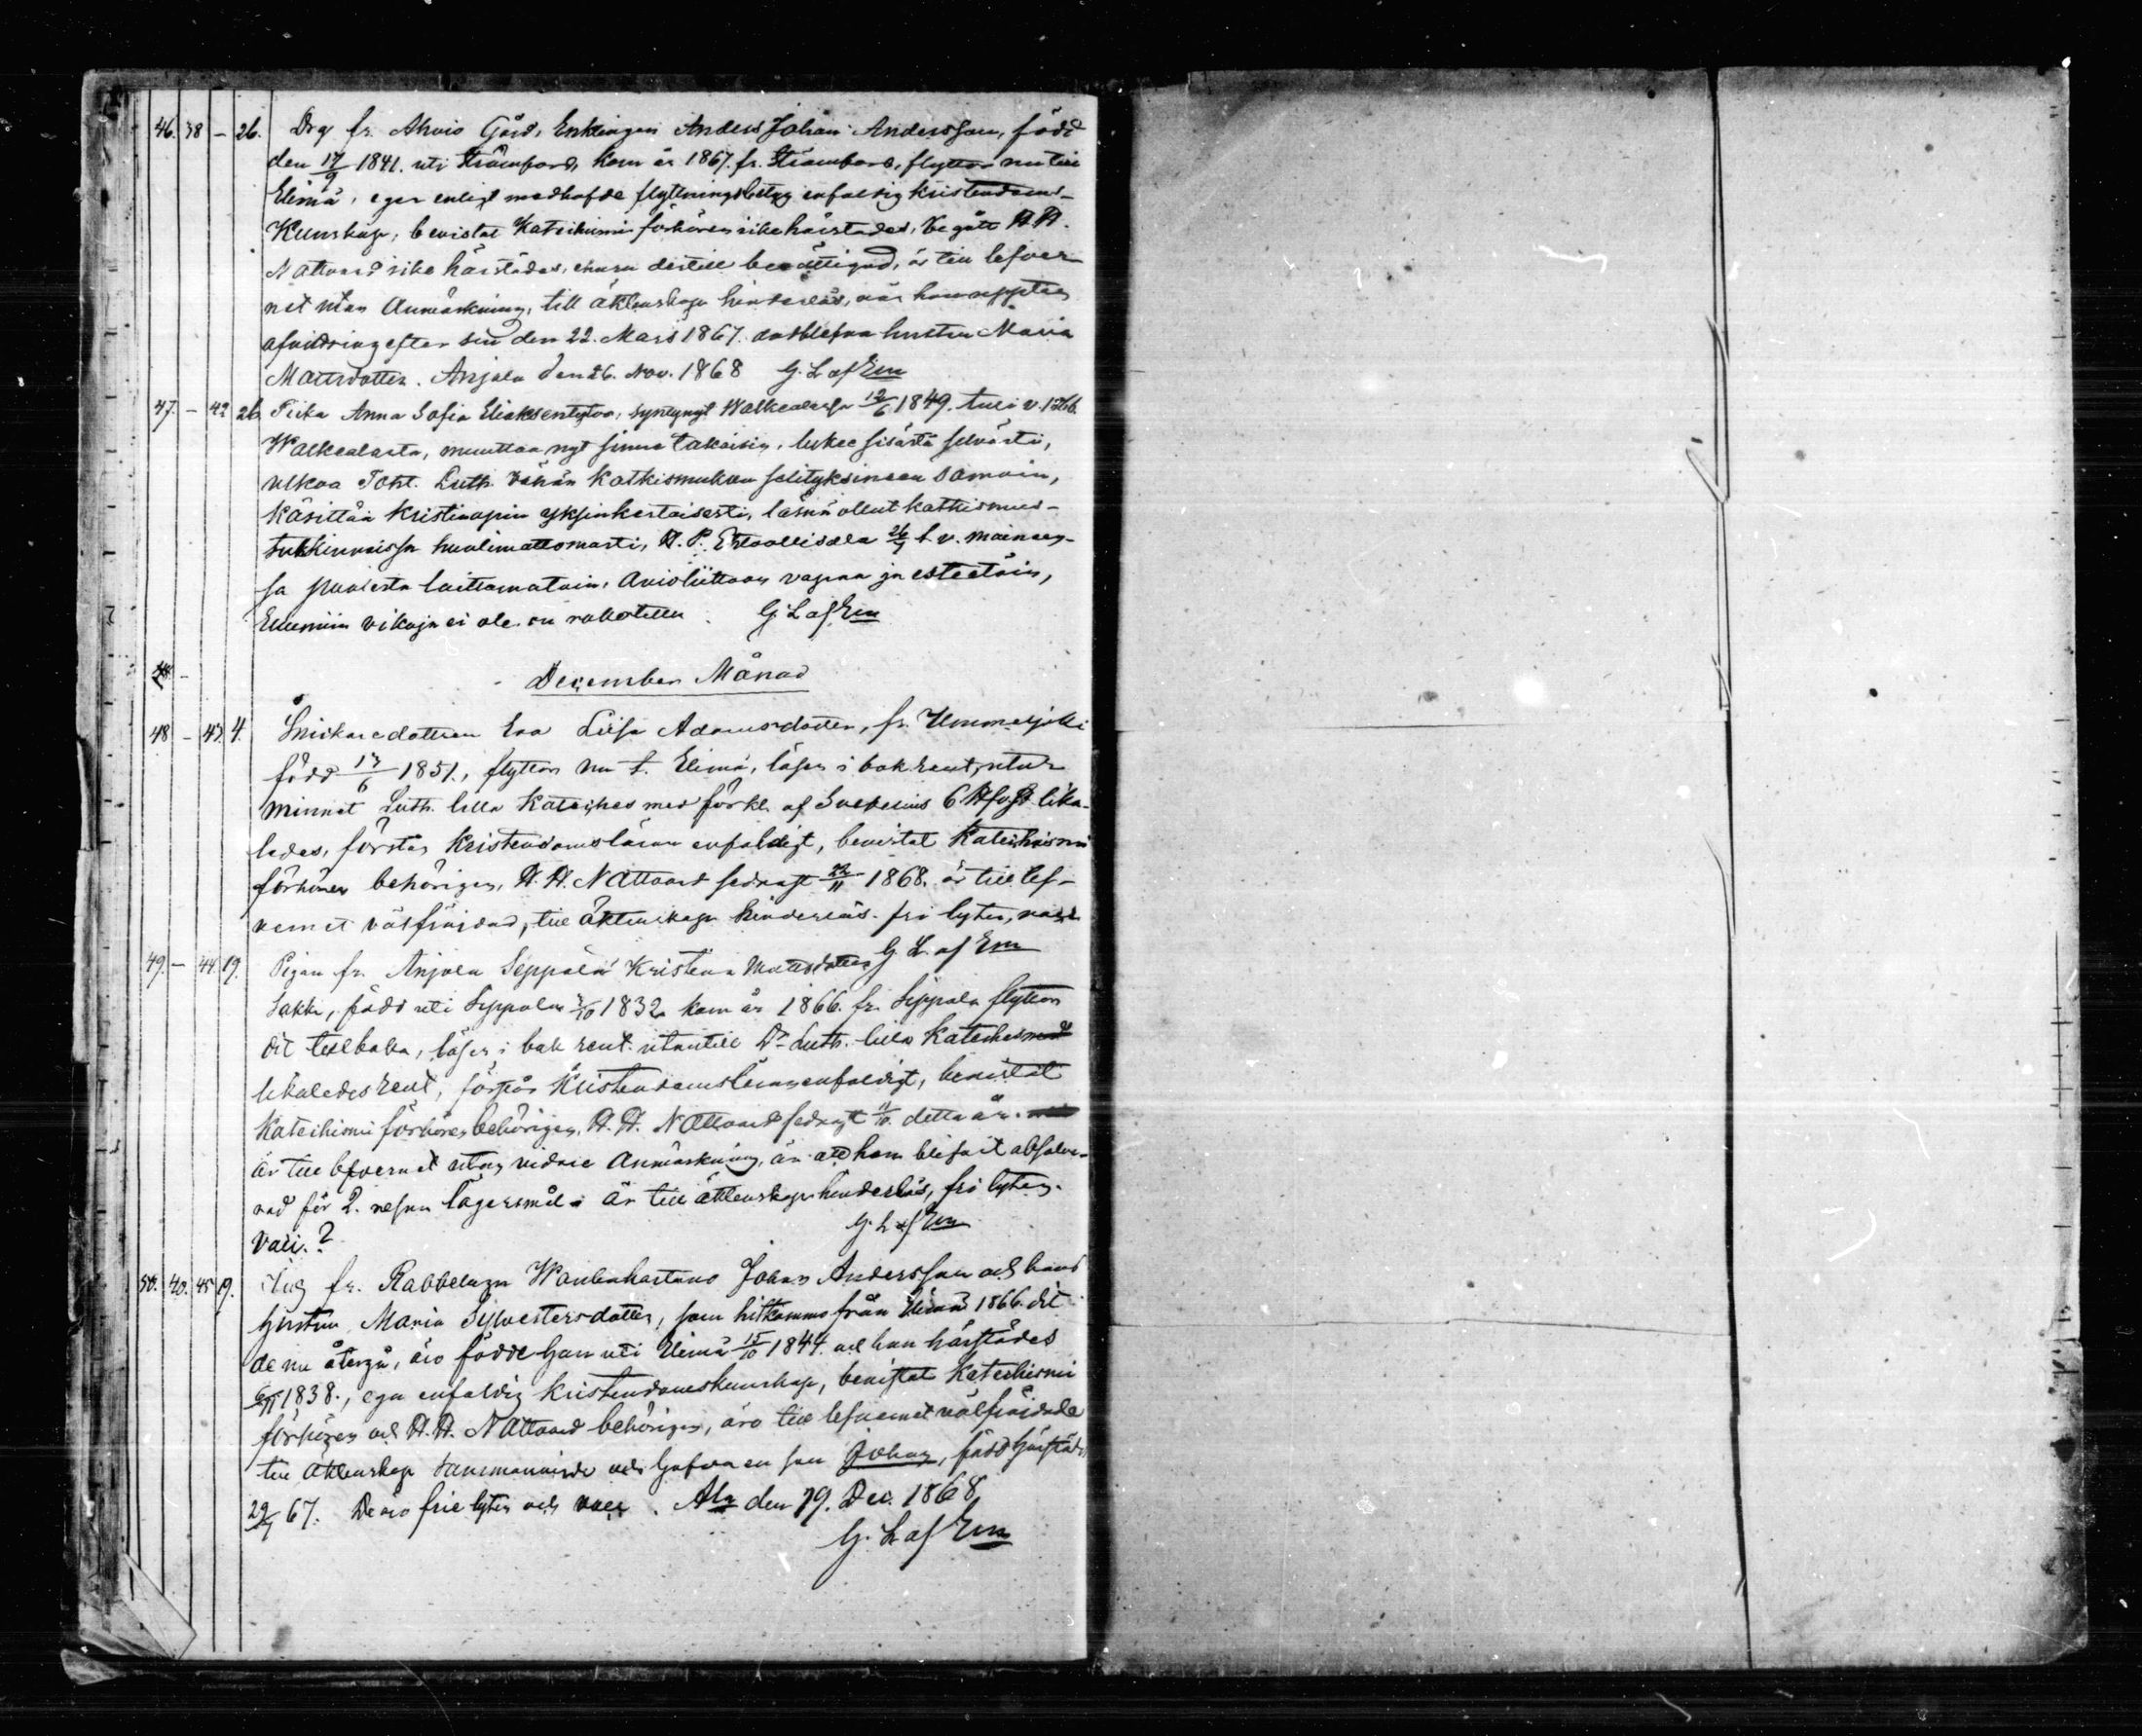 46. 38 – 26. Drg fr. Ahvio Gård, Enklingen Anders Johan Andersson, född
den 17/9 1841. uti Strömfors, kom år 1867. fr. Strömfors, flyttar nu till
Elimä, eger enligt medhafde flyttningsbetyg enfaldig kristendoms-
Kunskap, bevistat Katechismi förhören icke härstädes, begått H. H.
Nattvard icke härstädes, ehuru dertill berättigad, är till lefver-
net utan Anmärkning, till äktenskap hinderlös, när han uppter
afvittring efter sin den 22. Mars 1867. aflefna hustru Maria
Mattsdotter. Anjala den 26. Nov. 1868 G. L af Em
47. – 42 26. Piika Anna Sofia Eliaksentytär, syntynyt Walkealassa 12/6 1849. tuli v. 1866.
Walkealasta, muuttaa nyt sinne takaisin, lukee sisältä selvästi,
ulkoa Toht. Luth. vähän Katkismuksen selityksineen samoin,
Käsittää Kristinopin yksinkertaisesti, läsnä ollut katkismus-
tutkinnoissa huolimattomasti, H. P. Ehtoollisella 26/7 t. v. mainees-
sa puolesta laittamatoin, Avioliittoon vapaa ja esteetöin,
vikoja ei ole. on rokotettu. G. L af Em
December Månad
48 – 43 4. Snickaredottren Eva Liisa Adamsdotter, fr. Ummeljoki
född 17/6 1851., flyttar nu t. Elimä, läser i bok rent, utur
minnet Luth. lilla Kateches med förkl. af Svebelius lika-
ledes, förstår Kristendomsläran enfaldigt, bevistat Katechismi
förhören behörigen, H. H. Nattvard sednast 22/11 1868. är till lef-
vernet välfräjdad, till äktenskap hinderlös. fri lyten, vacc
G. L. af Em
49. – 44. 19. Pigan fr. Anjala Seppälä Kristina Mattsdotter
Sakki, född uti Seppälä 1832 kom år 1866. fr. Seppälä flyttar
dit tillbaka, läser i bok rent. utantill Dr Luth. lilla Kateches
likaledes rent, förstår Kristendomsläran enfaldigt, bevistat
Katechismi förhören behörigen, H. H. Nattvard sednast 11/10. detta år.
är till lefvernet utan vidare Anmärkning, än att hon blifvit absolve-
rad för 2. resan lägersmål. är till äktenskap hinderlös, fri lyten.
G. L af Em
vacc.?
50. 40. 45 19. fr. Rabbelugn Wanhakartano Johan Andersson och hans
hustru Maria Sylvestersdotter, som hitkommo från Elimä 1866. dit
de nu återgå, äro födde han uti Elimä 15/10 1844. och hon härstädes
6/11 1838., ega enfaldig kristendomskunskap, bevistat Katechismi
förhören och H. H. Nattvard behörigen, äro till lefvernet välfräjdade
till äktenskap sammanvigde och hafva en son Johan, född härstädes
67. De äro frie lyten och vacc. Ala den 19. Dec. 1868
G. L af Em